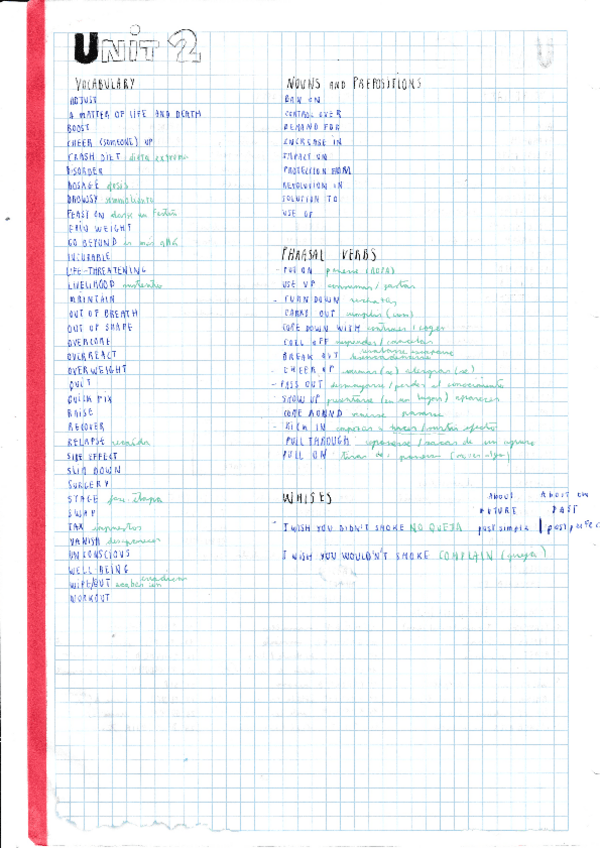 UNIT 2
VOCABULARY
ADJUST
A MATTER OF LIFE AND DEATH
BOOST
CHEER (SOMEONE) UP
CRASH DIET dieta extrema
DISORDER
DOSAGE dosis
DROWSY somnoliento
FEAST ON
GAIN WEIGHT
GO BEYOND ir más allá
INCURABLE
LIFE-THREATENING
LIVELIHOOD sustento
MAINTAIN
OUT OF BREATH
OUT OF SHAPE
OVERCOME
OVERREACT
OVERWEIGHT
QUIT
QUICK FIX
RAISE
RECOVER
RELAPSE recaída
SIDE EFFECT
SLIM DOWN
SURGERY
STAGE fase etapa
SWAP
TAX impuestos
VANISH desaparecer
UNCONSCIOUS
WELL-BEING
WIPE OUT erradicar
WORKOUT
NOUNS AND PREPOSITIONS
BAN ON
CONTROL OVER
DEMAND FOR
INCREASE IN
IMPACT ON
PROTECTION FROM
REVOLUTION IN
SOLUTION TO
USE OF
PHRASAL VERBS
- PUT ON ponerse (ROPA)
USE UP consumir / gastar
- TURN DOWN rechazar
CARRY OUT cumplir
COME DOWN WITH contraer / coger
CALL OFF suspender / cancelar
BREAK OUT
- CHEER UP animar (se) alegrar (se)
- PASS OUT desmayarse / perder el conocimiento
SHOW UP presentarse (en un lugar) aparecer
COME ROUND
- KICK IN empezar a hacer / surtir efecto
PULL THROUGH reponerse / salir de un apuro
PULL ON tirar de;
WHISES
ABOUT FUTURE
ABOUT ON PAST
- I WISH YOU DIDN'T SMOKE NO QUEJA past simple | past perfec
I WISH YOU WOULDN'T SMOKE COMPLAIN (queja)